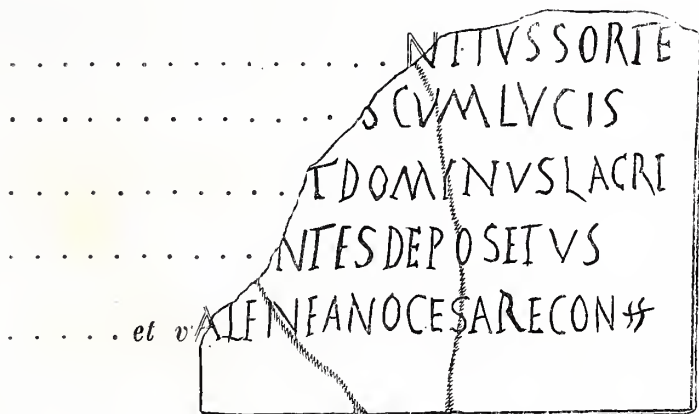 . . . . . . . . . . . . . . . NTIVSSORTE
. . . . . . . . . . . . . SCVMLVCIS
. . . . . . . . . . . . TDOMINVSLACRI
. . . . . . . . . . . NTESDEPOSETVS
. . . . . et vALENEANOCESARECON